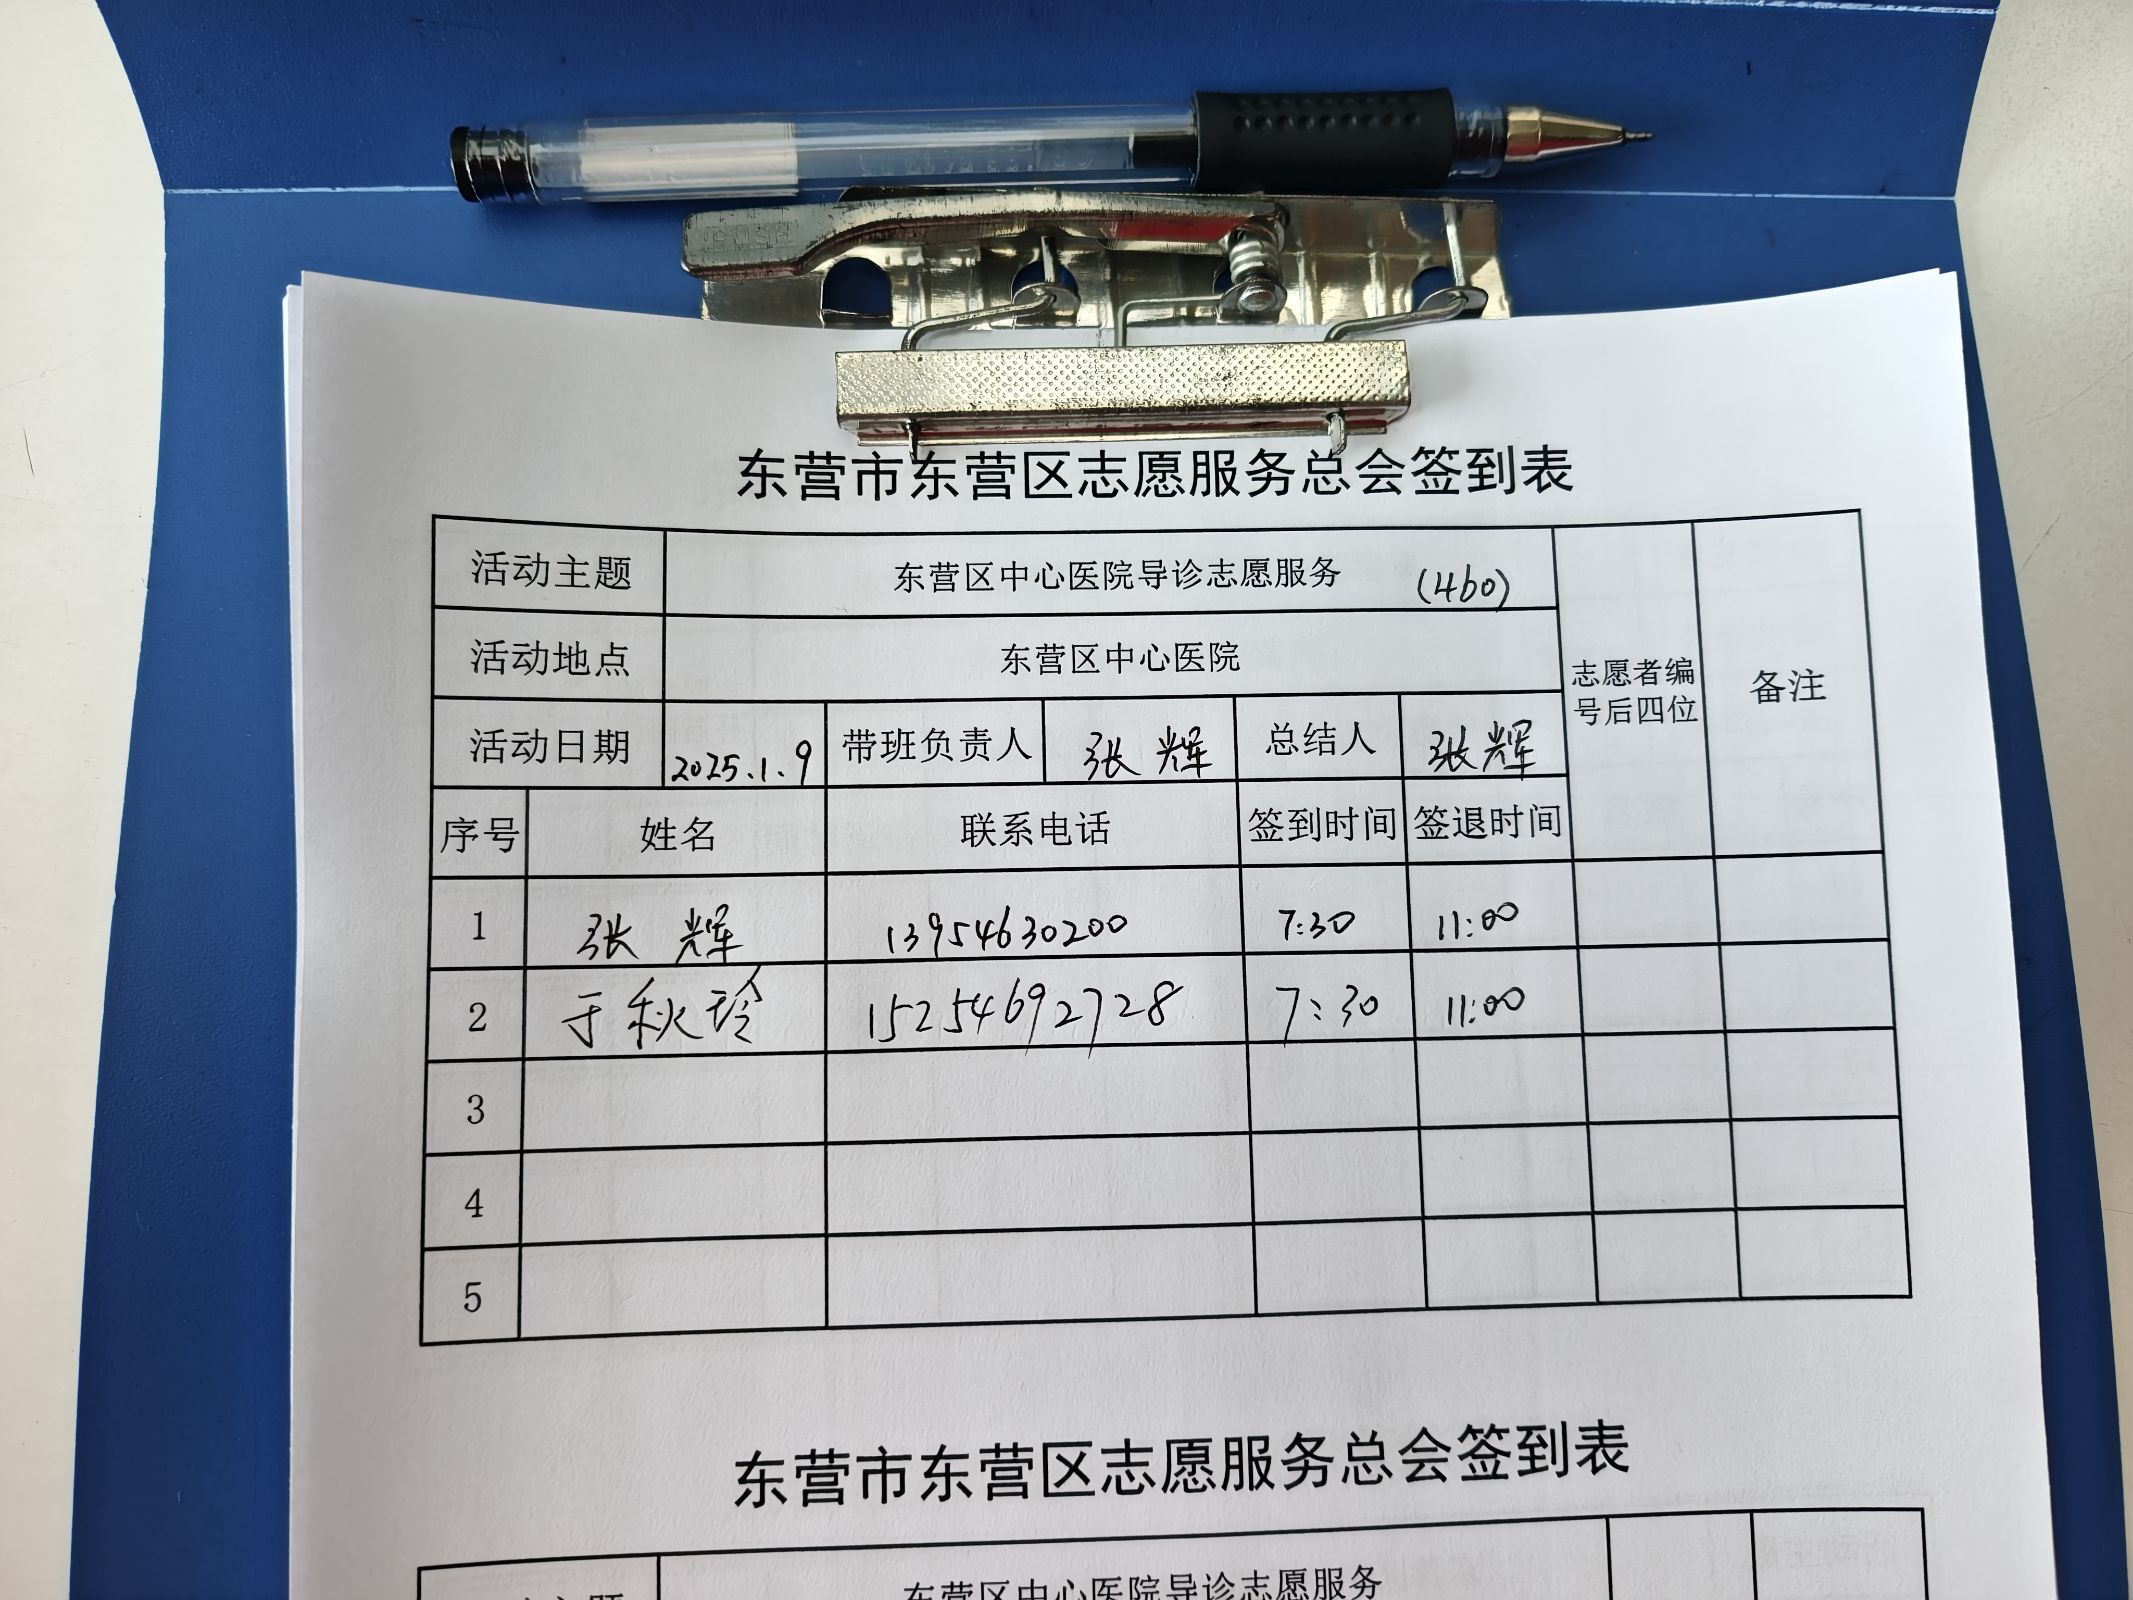 东营市东营区志愿服务总会签到表
活动主题 东营区中心医院导诊志愿服务 (460)
活动地点 东营区中心医院
志愿者编号后四位 备注
活动日期 2025.1.9 带班负责人 张辉 总结人 张辉
序号 姓名 联系电话 签到时间 签退时间
1 张辉 13954630200 7:30 11:00
2 于秋玲 15254692728 7:30 11:00
3
4
5
东营市东营区志愿服务总会签到表
东营区中心医院导诊志愿服务